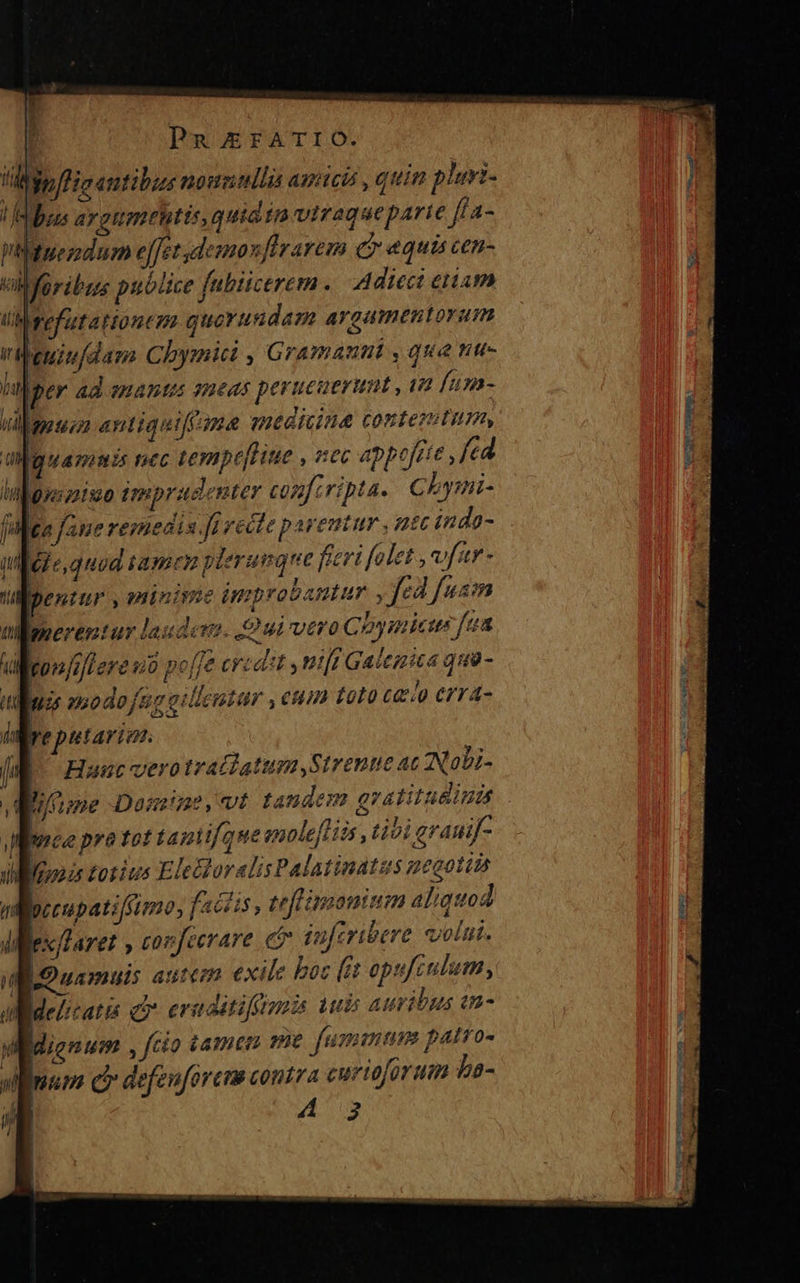 PRÆFATIO.
instigantibus nonnullis amicis, quin pluri-
bus argumentis, quid in vtraque parte sta-
tuendum esset, demonstrarem & æquis cen-
soribus publice subiicerem. Adieci etiam
refutationem quorundam argumentorum
cuiusdam Chymici, Gramanni, quæ nu-
per ad manus meas peruenerunt, in sum-
mum antiquissimæ medicinæ contemtum,
quamuis nec tempestiue, nec apposite, sed
omnino imprudenter conscripta. Chymi-
ca sane remedia si recte parentur, nec indo-
cte, quod tamen plerunque fieri solet, vsur-
pentur, minime improbantur, sed suam
merentur laudem. Qui vero Chymicus sua
consistere nō posse credit, nisi Galenica quo-
uis modo suggillentur, cum toto cælo erra-
re putarim.
Hunc vero tractatum, Strenue ac Nobi-
lissime Domine, vt tandem gratitudinis
meæ pro tot tantisque molestiis, tibi grauis-
simis totius Electoralis Palatinatus negotiis
occupatissimo, factis, testimonium aliquod
exstaret, consecrare & inscribere volui.
Quamuis autem exile hoc sit opusculum,
delicatis & eruditissimis tuis auribus in-
dignum, scio tamen me summum patro-
num & defensorem contra curiosorum ho-
A 3